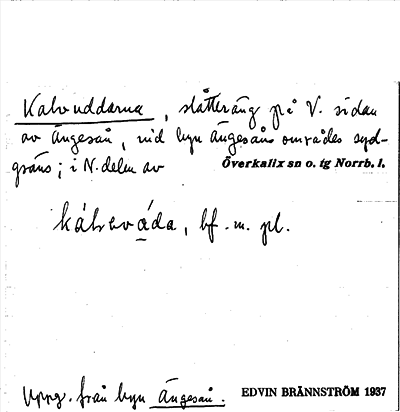 Kalvuddarna, slåtteräng på V. sidan
av Ängesån, vid byn Ängesåns områdes syd-
gräns; i N. delen av Överkalix sn o. tg Norrb. l.
kálvováda, bf. m. pl.
Uppg. från byn Ängesån. EDVIN BRÄNNSTRÖM 1937